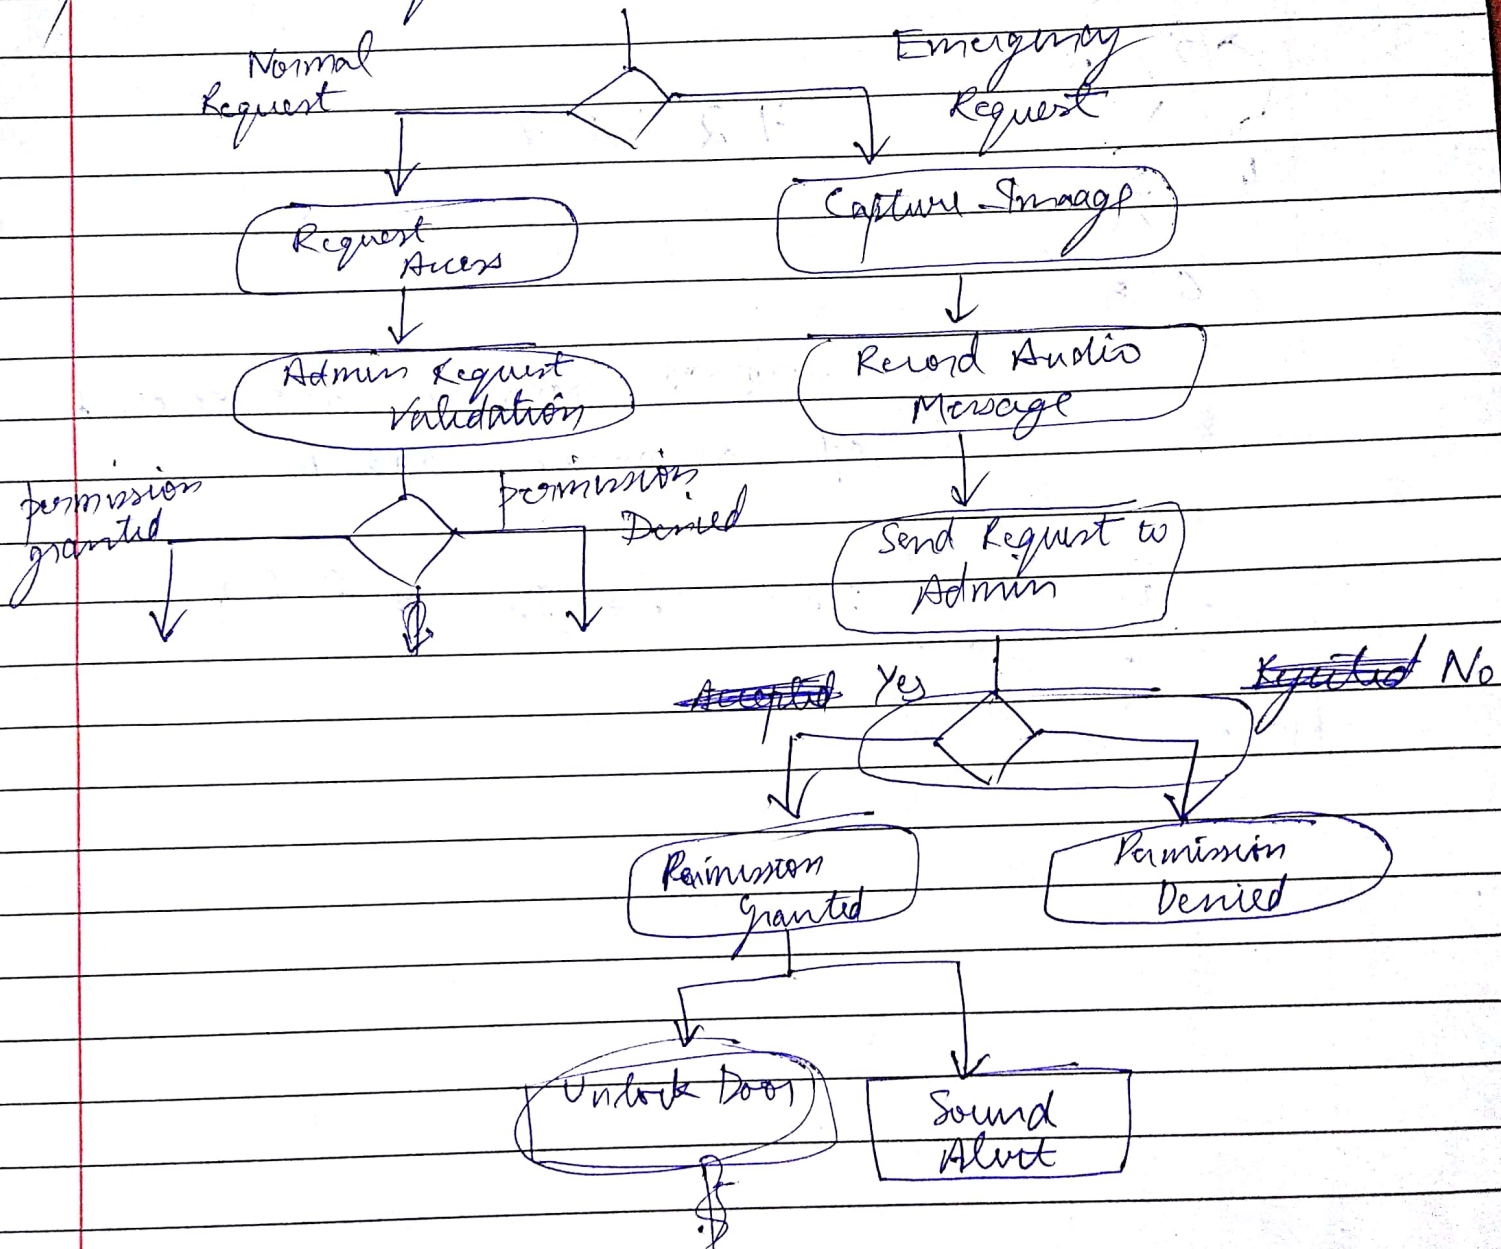 Normal
Request
Emergency
Request
Request
Access
Capture Imaage
Admin Request
Validation
Record Audio
Message
permission
granted
permission
Denied
Send Request to
Admin
Accepted Yes
Rejected No
Permission
Granted
Permission
Denied
Unlock Door
Sound
Alert